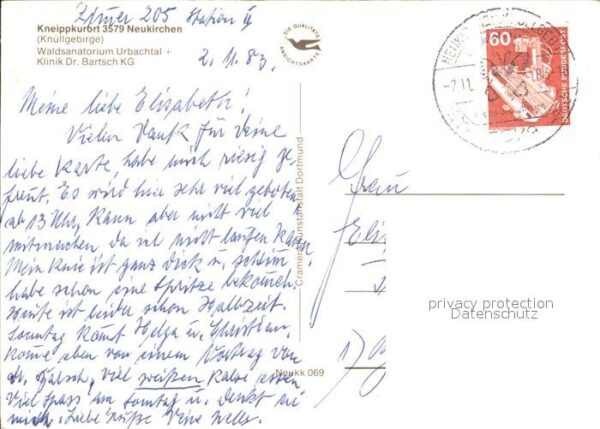 Zimer 205 Station II
Kneippkurort 3579 Neukirchen
(Knüllgebirge)
Waldsanatorium Urbachtal +
Klinik Dr. Bartsch KG
DIE QUALITÄTS
ANSICHTSKARTE
2.11.83.
Meine liebe Elisabeth!
Vielen Dank für Deine
liebe Karte, habe mich riesig ge-
freut. Es wird hier sehr viel geboten
ab 13 Uhr, kann aber nicht viel
mitmachen da ich nicht laufen kann.
Mein Knie ist ganz dick u.
habe schon eine Spritze bekomen.
Heute ist leider schon Halbzeit.
Sonntag komt Helga u. Christian.
Kome eben von einem Vortrag von
Dr. viel weißen Käse essen
Viel Spass am Sonntag u. denkt an
mich. Liebe Grüße Deine Nelly.
Cramers Kunstanstalt Dortmund
Neukk 069
60
DEUTSCHE BUNDESPOST
-2.11.
Frau
Eli
privacy protection
Datenschutz